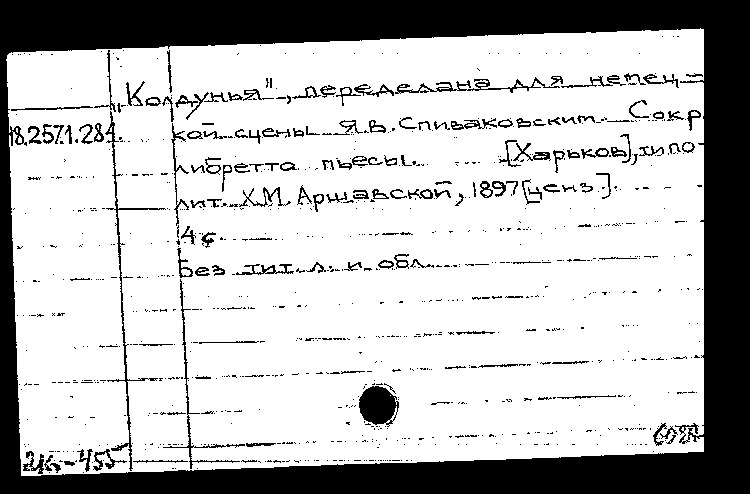 „Колдунья", переделана для немец-
18.257.1.284. кой сцены Я.В. Спиваковским. Сокр.
либретто пьесы. [Харьков], типо-
лит. Х.М. Аршавской, 1897 [ценз.].
4 с.
Без тит. л. и обл.
602А
216-455